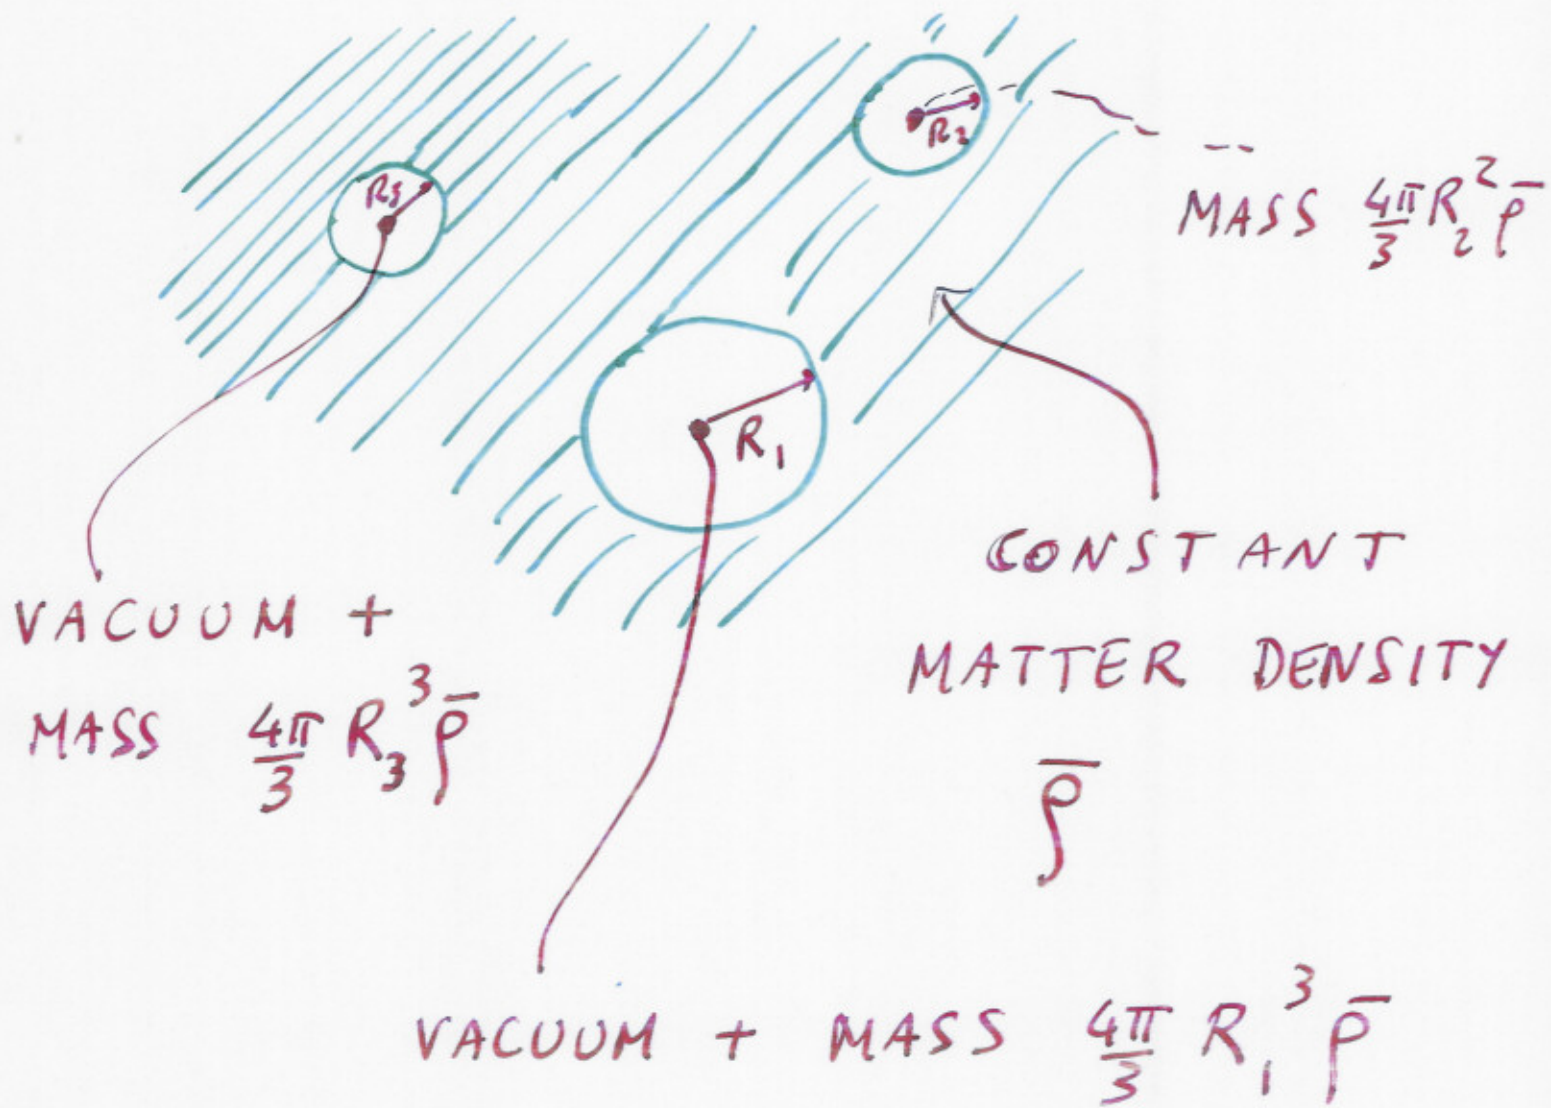 R₃
R₂
MASS 4π/3 R₂² ρ̄
R₁
CONSTANT
MATTER DENSITY
ρ̄
VACUUM +
MASS 4π/3 R₃³ ρ̄
VACUUM + MASS 4π/3 R₁³ ρ̄